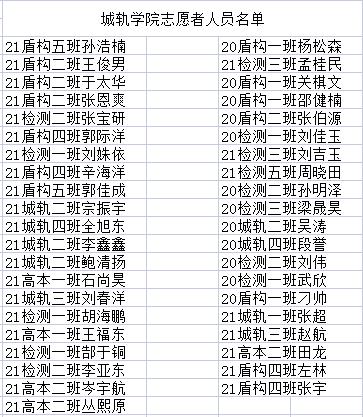 城轨学院志愿者人员名单
21盾构五班孙浩楠 20盾构一班杨松森
21盾构二班王俊男 21检测三班孟桂民
21盾构二班于太华 20盾构一班关棋文
21盾构二班张恩爽 20盾构一班邵健楠
21检测二班张宝研 20盾构二班张伯源
21盾构四班郭际洋 20检测一班刘佳玉
21检测一班刘姝依 21检测三班刘吉玉
21盾构四班辛海洋 21检测五班周晓田
21盾构五班郭佳成 20检测二班孙明泽
21城轨二班宗振宇 20检测三班梁晟昊
21城轨四班全旭东 20城轨二班吴涛
21城轨二班李鑫鑫 20城轨四班段誉
21城轨二班鲍清扬 20检测二班刘伟
21高本一班石尚昊 20检测一班武欣
21城轨三班刘春洋 20盾构一班刁帅
21检测一班胡海鹏 21城轨一班张超
21高本一班王福东 21城轨三班赵航
21检测一班郜于铜 21高本二班田龙
21检测二班李亚东 21盾构四班左林
21高本二班岑宇航 21盾构四班张宇
21高本二班丛熙原